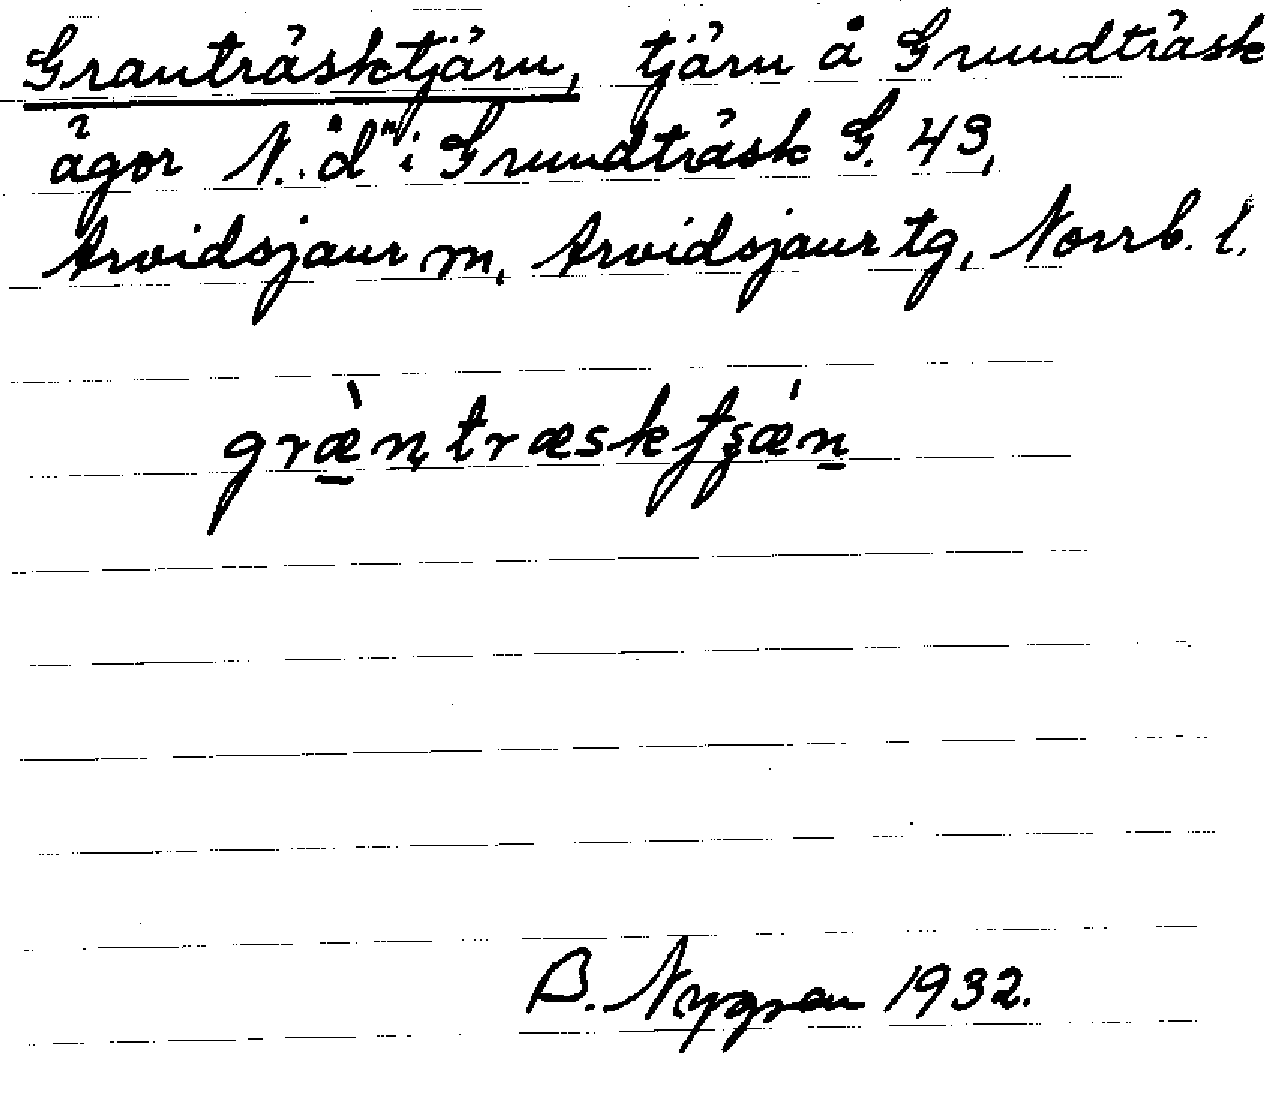 Granträsktjärn, tjärn å Grundträsk
ägor N. åd⁠n i Grundträsk G. 43,
Arvidsjaur sn, Arvidsjaur tg, Norrb. l.
græ̀ntræsktʂǽn
B. Nygren 1932.